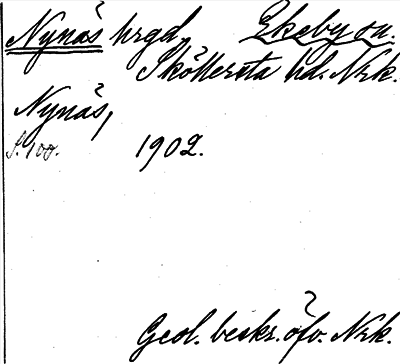 Nynäs hrgd, Ekeby sn.
Sköllersta hd. Nrk.
Nynäs,
S. 400. 1902.
Geol. beskr. öfv. Nrk.